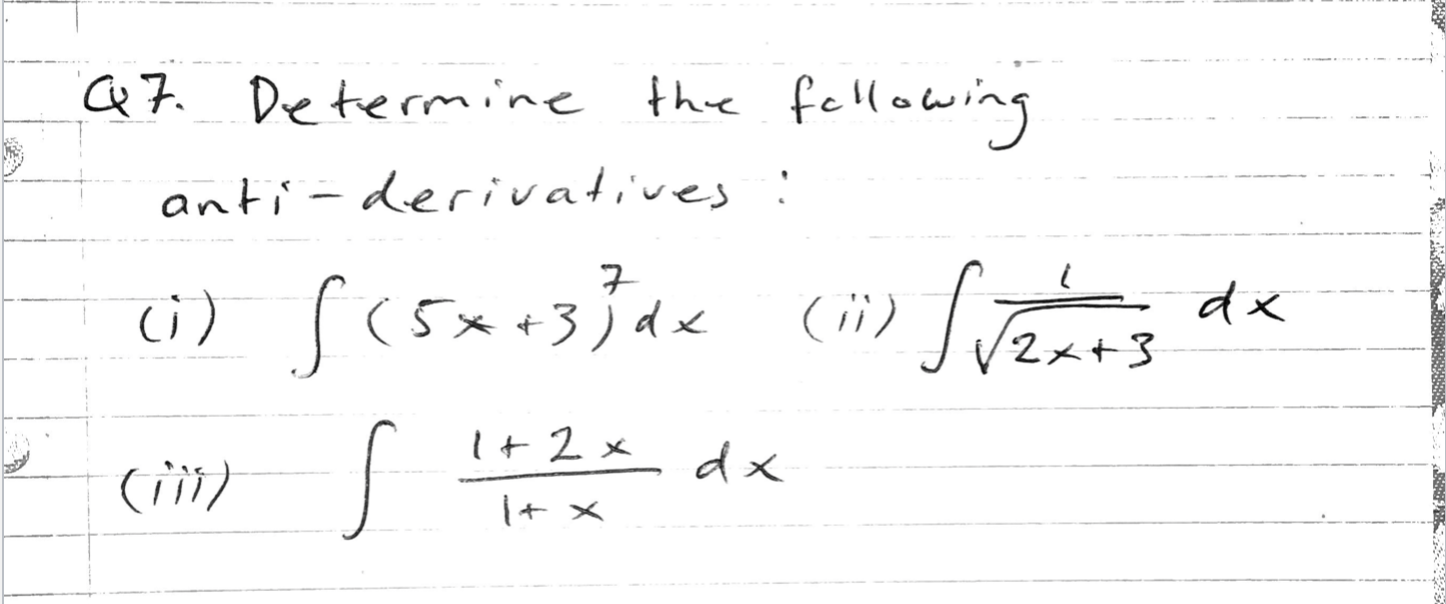 Q7. Determine the following
anti-derivatives:
(i) ∫(5x+3)⁷dx (ii) ∫ 1/√(2x+3) dx
(iii) ∫ (1+2x)/(1+x) dx